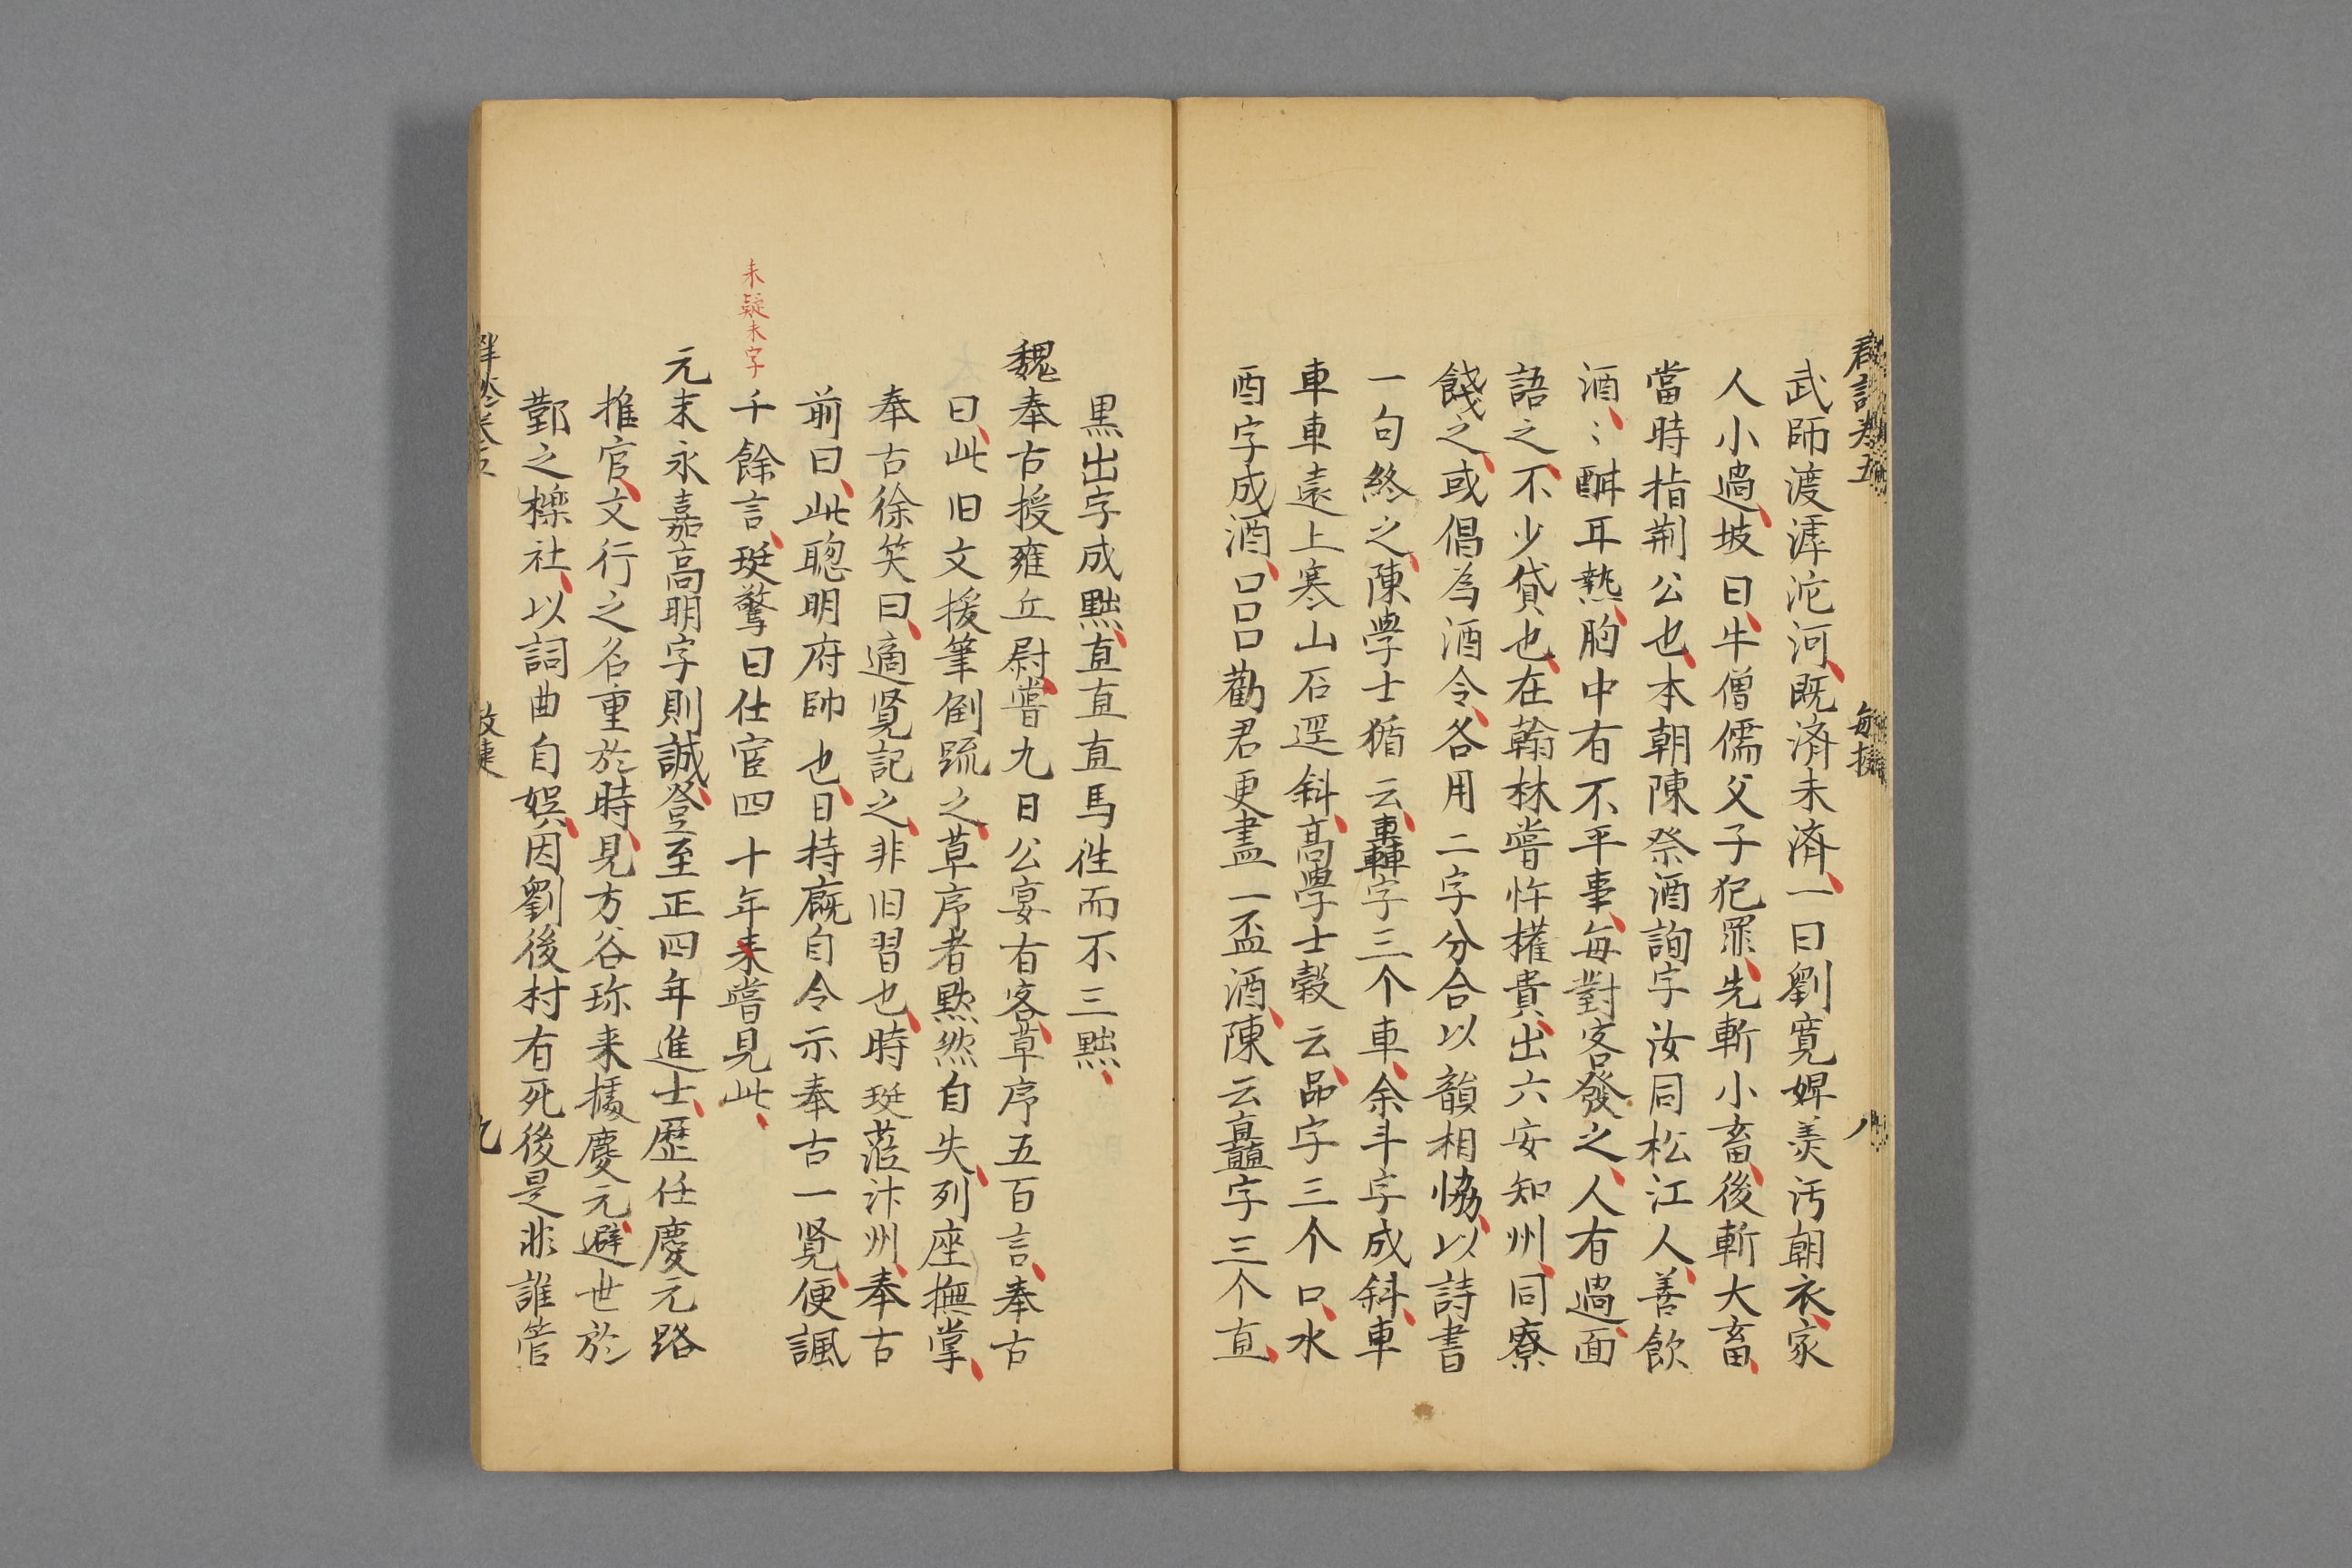 武師渡滹沱河既済未済一曰劉寛婢羙汚朝衣家
人小過坡曰牛僧儒父子犯罪先斬小畜後斬大畜
當時指荆公也本朝陳祭酒詢字汝同松江人善飲
酒〻酣耳熱胸中有不平事毎對客發之人有過面
語之不少貸也在翰林嘗忤權貴出六安知州同寮
餞之或倡為酒令各用二字分合以韻相恊以詩書
一句終之陳學士循云轟字三个車余斗字成斜車
車車遠上寒山石逕斜髙學士糓云品字三个口水
酉字成酒口口口勸君更盡一盃酒陳云矗字三个直
黒出字成黜直直直馬徃而不三黜
魏奉古授雍丘尉嘗九日公宴有客草序五百言奉古
曰此旧文援筆倒䟽之草序者黙然自失列座撫掌
奉古徐笑曰適覧記之非旧習也時珽蒞汴州奉古
前曰此聰明府帥也日持廐自令示奉古一覧便諷
千餘言珽驚曰仕宦四十年耒嘗見此
耒疑未字
元末永嘉高明字則誠登至正四年進士歴任慶元路
推官文行之名重於時見方谷珎来據慶元避世於
鄞之櫟社以詞曲自娯因劉後村有死後是非誰管